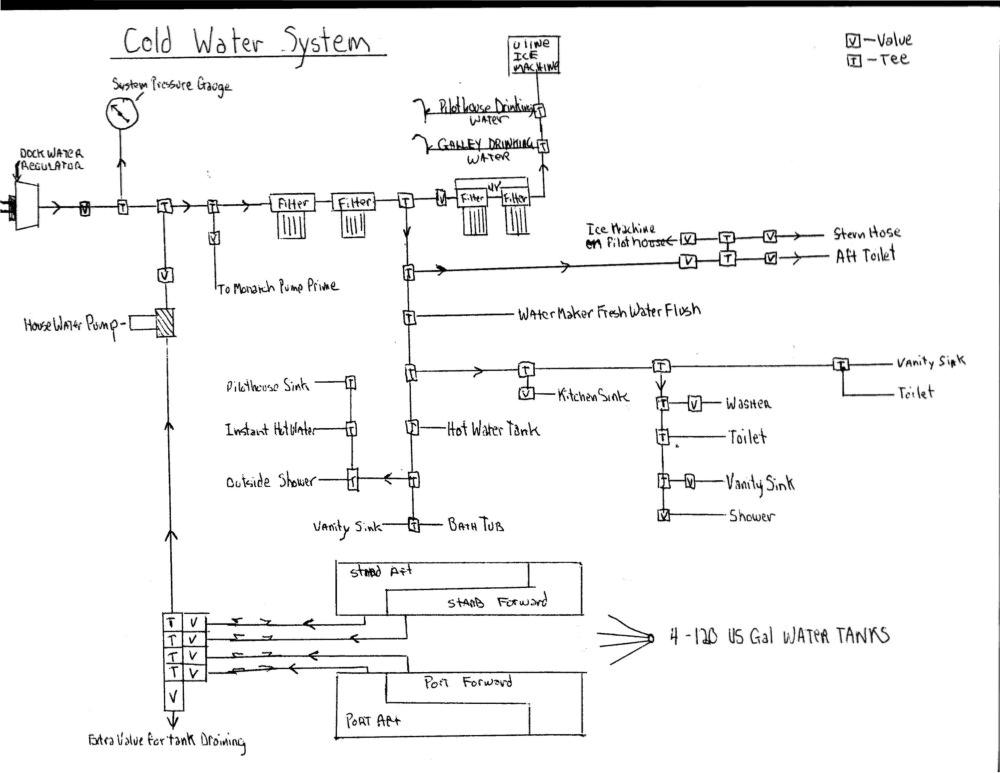 Cold Water System
U LINE
ICE
MACHINE
V - Value
T - Tee
System Pressure Gauge
Pilothouse Drinking
WATER
GALLEY DRINKING
WATER
DOCK WATER
REGULATOR
V
T
T
T
Filter
Filter
T
V
UV
Filter
Filter
T
T
V
V
To Monatch Pump Prime
House Water Pump
Ice Machine
on Pilothouse
V
T
V
Stern Hose
T
V
T
V
Aft Toilet
T
Water Maker Fresh Water Flush
T
T
T
T
Vanity Sink
Toilet
V
Kitchen Sink
Pilothouse Sink
T
T
V
Washer
Instant Hot Water
T
T
Hot Water Tank
T
Toilet
Outside Shower
T
T
T
V
Vanity Sink
Vanity Sink
T
BATH TUB
V
Shower
Stnbd Aft
STANB Forward
T V
T V
T V
T V
V
4 - 120 US Gal WATER TANKS
Port Forward
PORT Aft
Extra Value for tank Droining